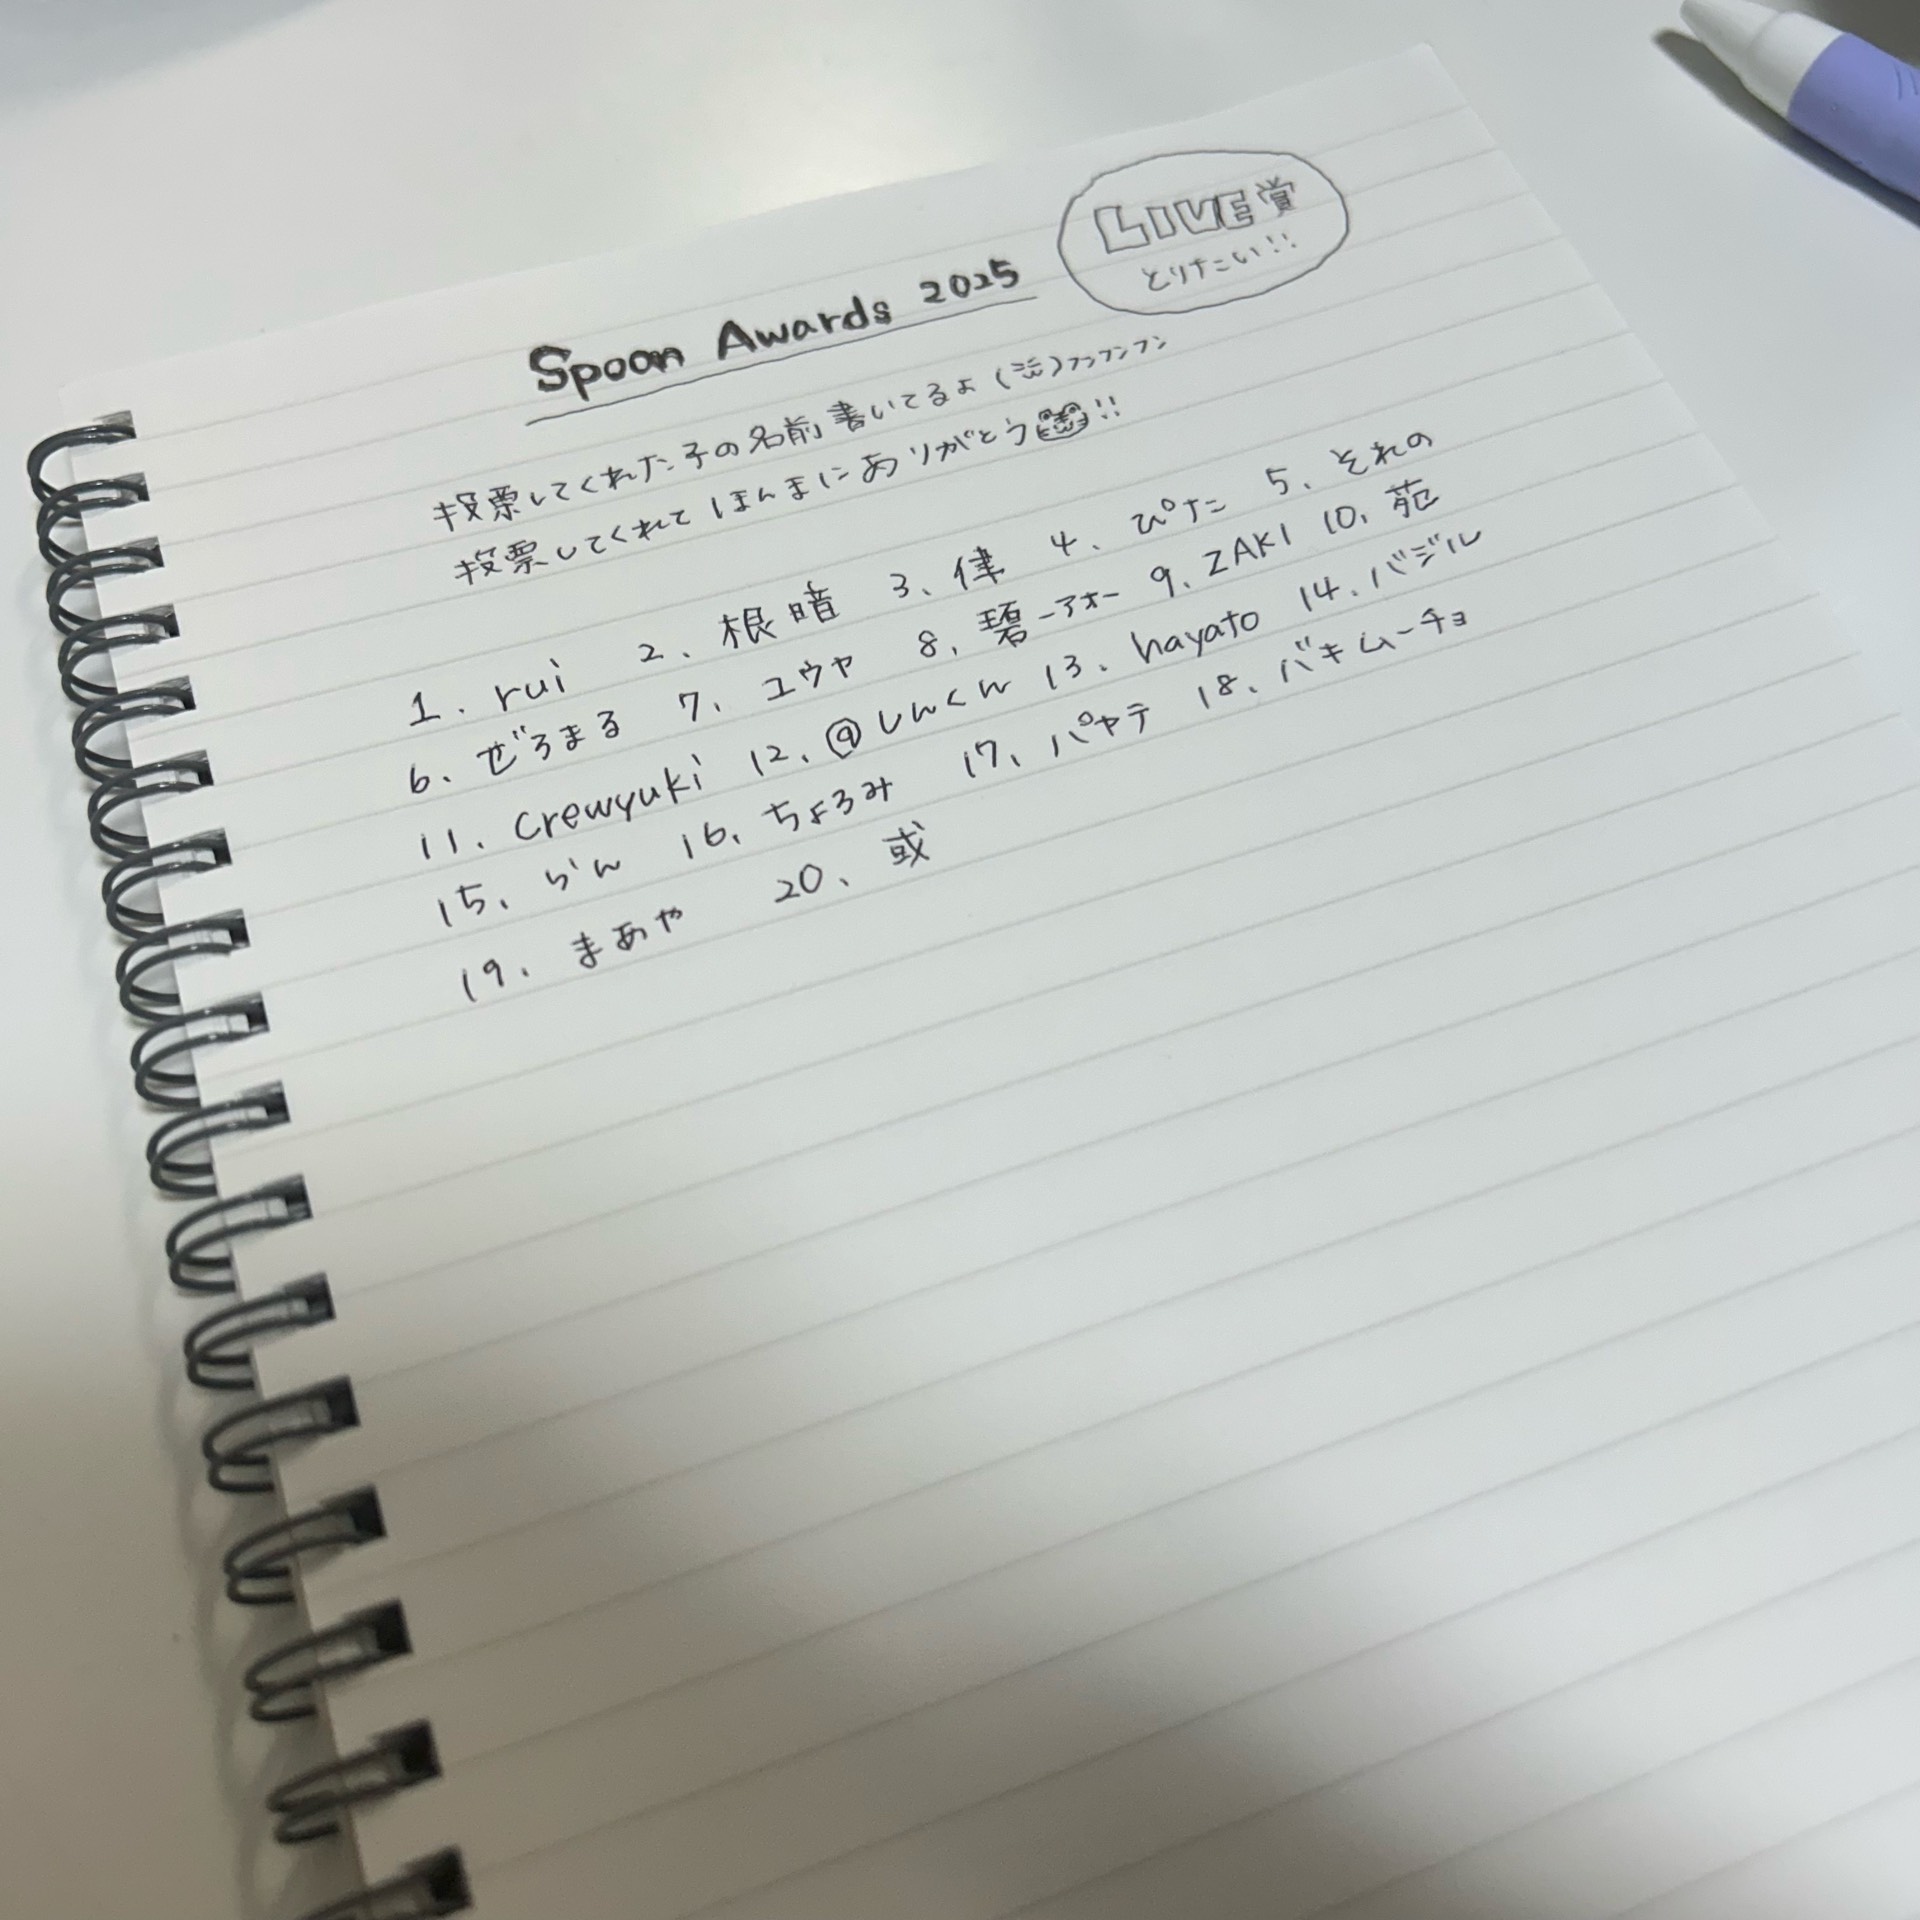 LIVE賞
とりたい!!
Spoon Awards 2025
投票してくれた子の名前書いてるよ フンフンフン
投票してくれてほんまにありがとう!!
1、rui 2、根暗 3、律 4、ぴた 5、それの
6、ぜろまる 7、ユウヤ 8、碧-アオ- 9、ZAKI 10、苑
11、crewyuki 12、@しんくん 13、hayato 14、バジル
15、らん 16、ちょろみ 17、パヤテ 18、バキムーチョ
19、まあや 20、或